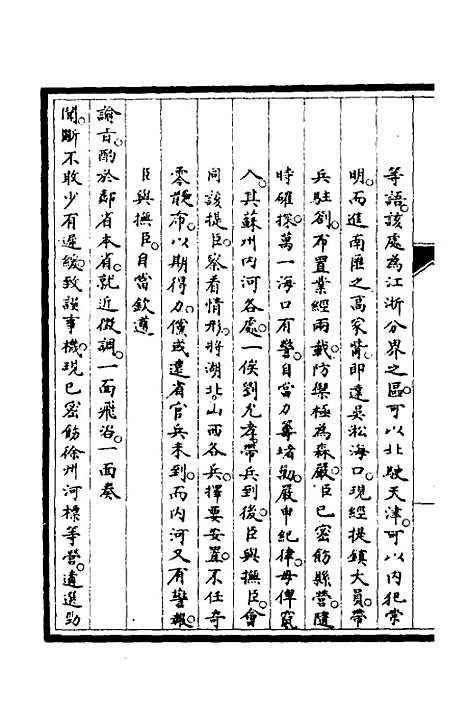 等語。該處為江浙分界之區。可以北駛天津。可以內犯常
明。而進南匯之高家嘴。即達吳松海口。現經提鎮大員。帶
兵駐劄。布置業經兩載。防禦極為森嚴。臣已密飭縣營。隨
時確探。萬一海口有警。自當力籌堵勦。嚴申紀律。毋俾竄
入。其蘇州內河各處。一俟劉允孝。帶兵到後。臣與撫臣。會
同該提臣。察看情形。將湖北。山西各兵。擇要安置。不任奇
零散布。以期得力。儻或遠省官兵未到。而內河又有警報。
臣與撫臣。自當欽遵
諭旨。酌於鄰省本省。就近徵調。一面飛咨。一面奏
聞。斷不敢少有遲緩。致誤事機。現已密飭徐州河標等營。遴選勁